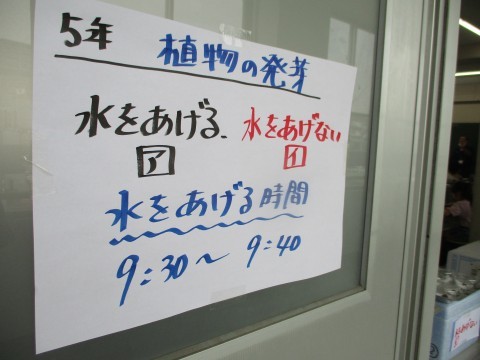 5年 植物の発芽
水をあげる 水をあげない
ア イ
水をあげる時間
9:30～9:40
水をあげない